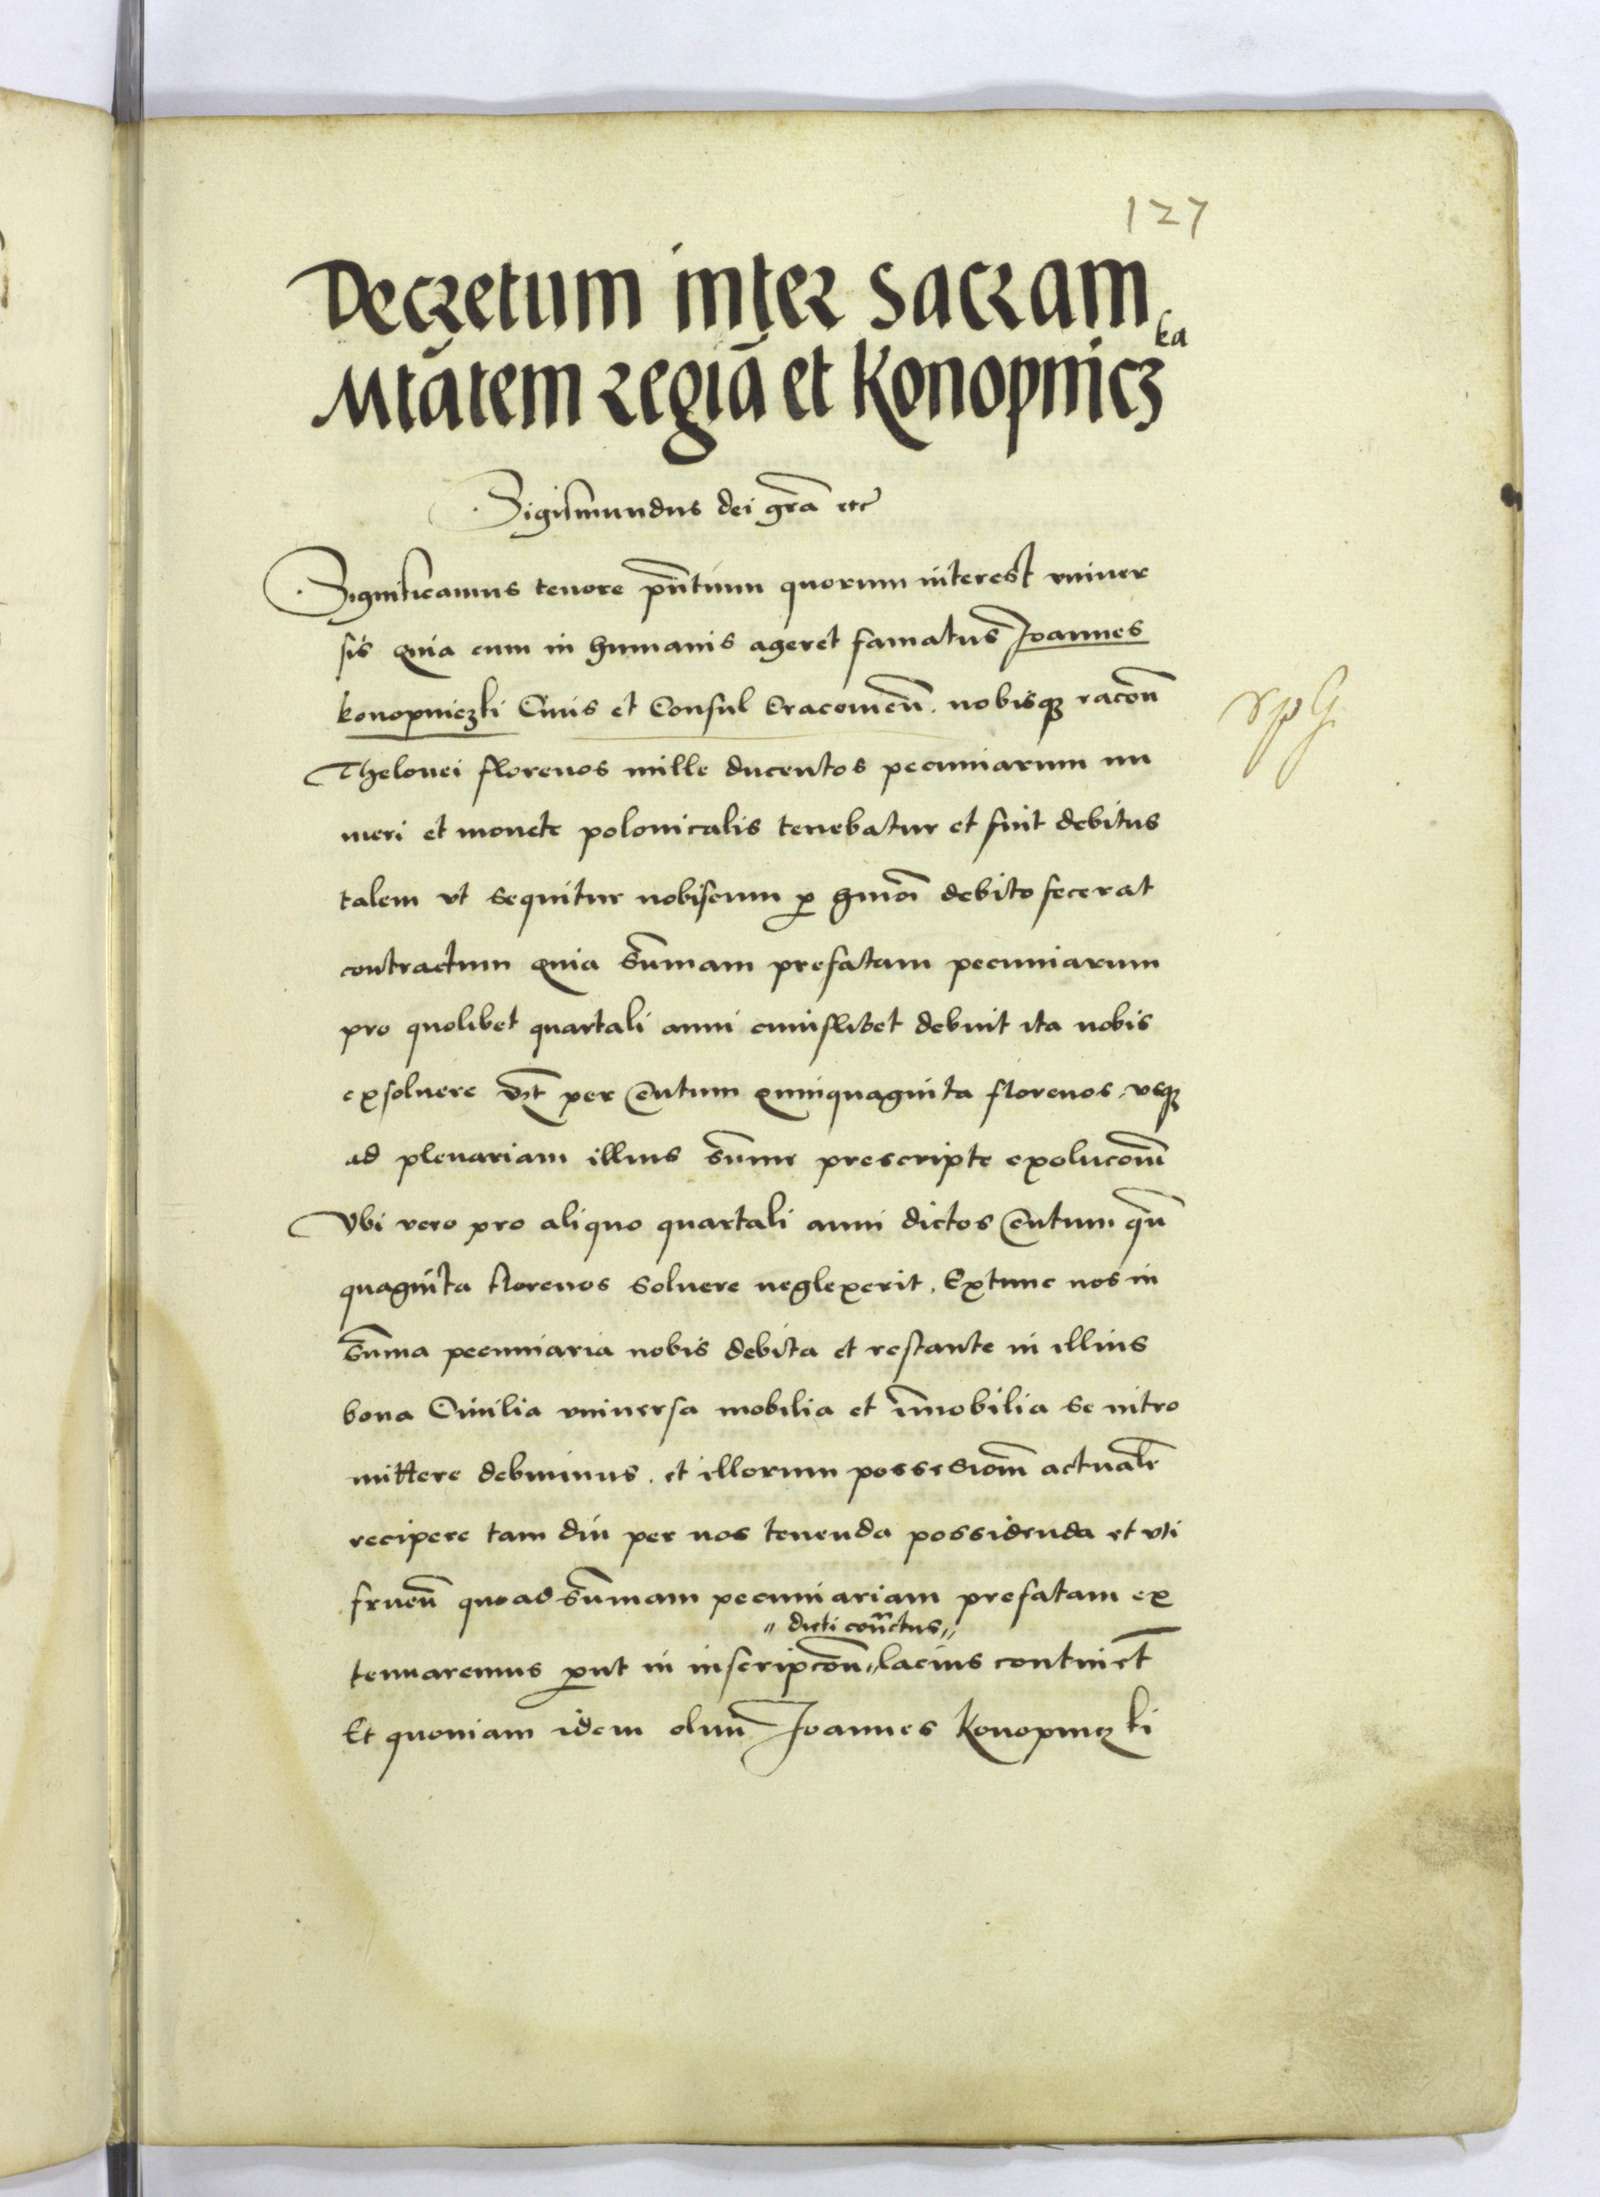 127
Decretum inter sacram
Mtãtem regiã et Konopnicz
ka
Sigismundus dei grã etc
Significamus tenore pñtium quorum interest vniuer
sis quia cum in humanis ageret famatus Joannes
konopniczki Ciuis et Consul Cracouieñ. nobisq racoñ
Thelonei florenos mille ducentos pecuniarum nu
meri et monete polonicalis tenebatur et fuit debitus
talem vt sequitur nobiscum p hmõi debito fecerat
contractum quia sum̃am prefatam pecuniarum
pro quolibet quartali anni cuiuslibet debuit ita nobis
exsoluere vzt per Centum quinquaginta florenos, vsq
ad plenariam illius sum̃e prescripte exolucoem̃
Vbi vero pro aliquo quartali anni dictos Centum quĩ
quaginta florenos soluere neglexerit. Extunc nos in
sum̃a pecuniaria nobis debita et restante in illius
bona Ciuilia vniuersa mobilia et im̃obilia se intro
mittere debuimus. et illorum possessiom̃ actualẽ
recipere tam diu per nos tenenda possidenda et vti
frueñ quoad sum̃am pecuniariam prefatam ex
" dicti cont̃ctus "
tenuaremus put in inscripcoñ " lacius continet̃
Et quoniam idem olim̃ Joannes Konopniczki